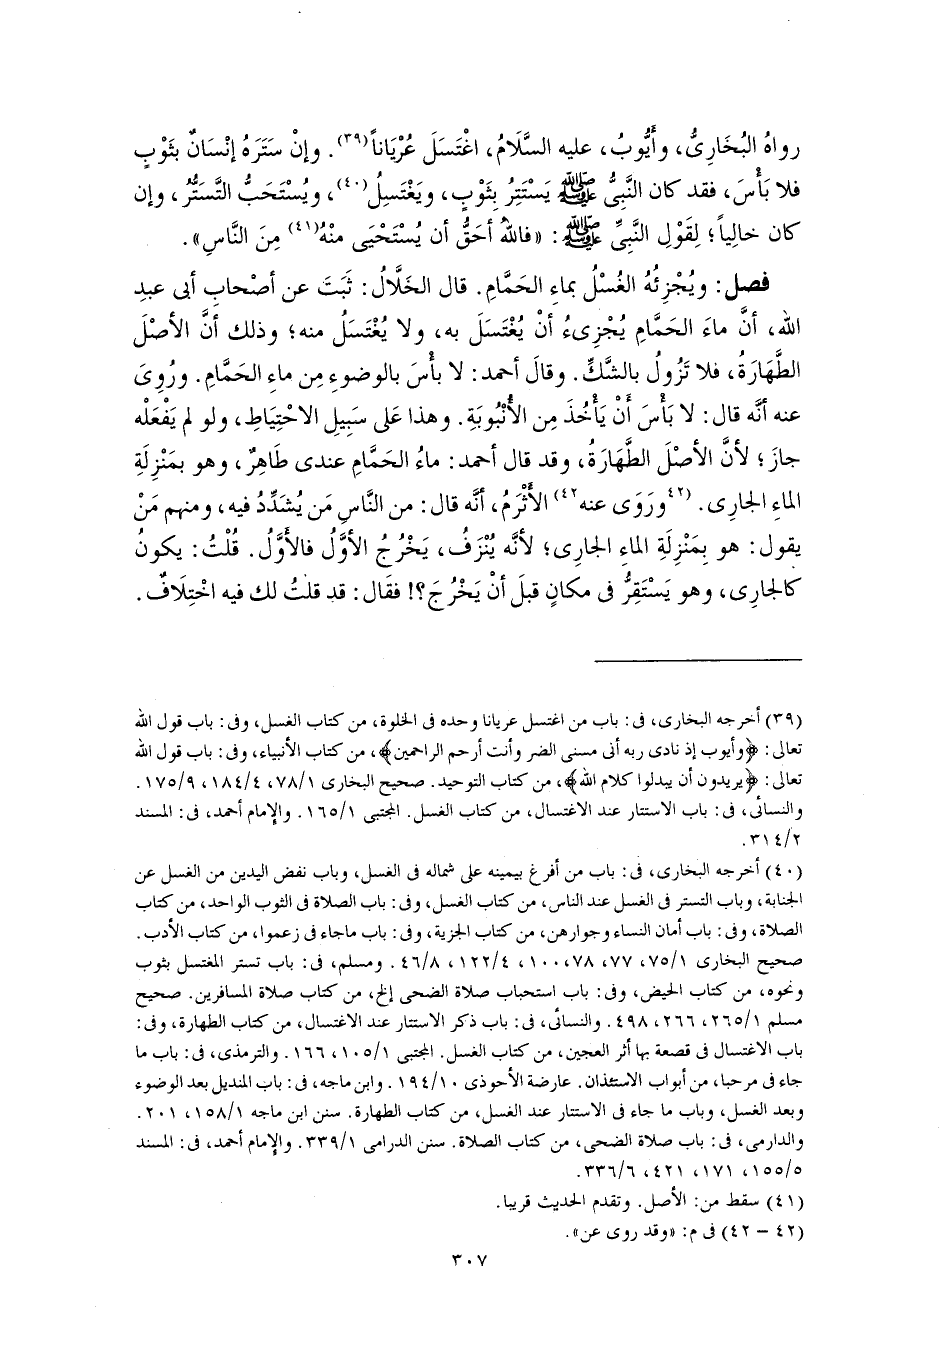 رواهُ البُخَارِىُّ، وأَيُّوبُ، عليه السَّلَامُ، اغْتَسَلَ عُرْيَاناً(٣٩). وإنْ سَتَرَهُ إنْسَانٌ بثَوْبٍ
فلا بَأْسَ، فقد كان النَّبِىُّ ﷺ يَسْتَتِرُ بِثَوْبٍ، ويَغْتَسِلُ(٤٠)، ويُسْتَحَبُّ التَّسَتُّرُ، وإن
كان خالِياً؛ لِقَوْلِ النَّبِىِّ ﷺ: «فاللهُ أحَقُّ أن يُسْتَحْيَى منْهُ(٤١) مِنَ النَّاسِ».
فصل: ويُجْزِئُهُ الغُسْلُ بماءِ الحَمَّامِ. قال الخَلَّالُ: ثَبَتَ عن أصْحابِ أبى عبدِ
الله، أنَّ ماءَ الحَمَّامِ يُجْزِىءُ أنْ يُغْتَسَلَ به، ولا يُغْتَسَلُ منه؛ وذلك أنَّ الأصْلَ
الطَّهَارَةُ، فلا تَزُولُ بالشَّكِّ. وقالَ أحمد: لا بأْسَ بالوضوءِ مِن ماءِ الحَمَّامِ. ورُوِىَ
عنه أنَّه قال: لا بَأْسَ أَنْ يَأْخُذَ مِن الأُنْبُوبَةِ. وهذا عَلَى سَبِيلِ الاحْتِيَاطِ، ولو لم يَفْعَلْه
جازَ؛ لأنَّ الأصْلَ الطَّهَارَةُ، وقد قال أحمد: ماءُ الحَمَّامِ عندى طَاهِرٌ، وهو بمَنْزِلَةِ
الماءِ الجارِى. (٤٢ورَوَى عنه٤٢) الأَثْرَمُ، أنَّه قال: من النَّاسِ مَن يُشَدِّدُ فيه، ومنهم مَنْ
يقول: هو بِمَنْزِلَةِ الماءِ الجارِى؛ لأنَّه يُنْزَفُ، يَخْرُجُ الأوَّلُ فالأَوَّلُ. قُلْتُ: يكونُ
كالجارِى، وهو يَسْتَقِرُّ فى مكانٍ قبلَ أنْ يَخْرُجَ؟! فقَال: قد قلتُ لك فيه اخْتِلَافٌ.
(٣٩) أخرجه البخارى، فى: باب من اغتسل عريانا وحده فى الخلوة، من كتاب الغسل، وفى: باب قول الله
تعالى: ﴿وأيوب إذ نادى ربه أنى مسنى الضر وأنت أرحم الراحمين﴾، من كتاب الأنبياء، وفى: باب قول الله
تعالى: ﴿يريدون أن يبدلوا كلام الله﴾، من كتاب التوحيد. صحيح البخارى ٧٨/١، ١٨٤/٤، ١٧٥/٩.
والنسائى، فى: باب الاستتار عند الاغتسال، من كتاب الغسل. المجتبى ١٦٥/١. والإمام أحمد، فى: المسند
٣١٤/٢.
(٤٠) أخرجه البخارى، فى: باب من أفرغ بيمينه على شماله فى الغسل، وباب نفض اليدين من الغسل عن
الجنابة، وباب التستر فى الغسل عند الناس، من كتاب الغسل، وفى: باب الصلاة فى الثوب الواحد، من كتاب
الصلاة، وفى: باب أمان النساء وجوارهن، من كتاب الجزية، وفى: باب ماجاء فى زعموا، من كتاب الأدب.
صحيح البخارى ٧٥/١، ٧٧، ٧٨، ١٠٠، ١٢٢/٤، ٤٦/٨. ومسلم، فى: باب تستر المغتسل بثوب
ونحوه، من كتاب الحيض، وفى: باب استحباب صلاة الضحى إلخ، من كتاب صلاة المسافرين. صحيح
مسلم ٢٦٥/١، ٢٦٦، ٤٩٨. والنسائى، فى: باب ذكر الاستتار عند الاغتسال، من كتاب الطهارة، وفى:
باب الاغتسال فى قصعة بها أثر العجين، من كتاب الغسل. المجتبى ١٠٥/١، ١٦٦. والترمذى، فى: باب ما
جاء فى مرحبا، من أبواب الاستئذان. عارضة الأحوذى ١٩٤/١٠. وابن ماجه، فى: باب المنديل بعد الوضوء
وبعد الغسل، وباب ما جاء فى الاستتار عند الغسل، من كتاب الطهارة. سنن ابن ماجه ١٥٨/١، ٢٠١.
والدارمى، فى: باب صلاة الضحى، من كتاب الصلاة. سنن الدارمى ٣٣٩/١. والإمام أحمد، فى: المسند
١٥٥/٥، ١٧١، ٤٢١، ٣٣٦/٦.
(٤١) سقط من: الأصل. وتقدم الحديث قريبا.
(٤٢ – ٤٢) فى م: «وقد روى عن».
٣٠٧